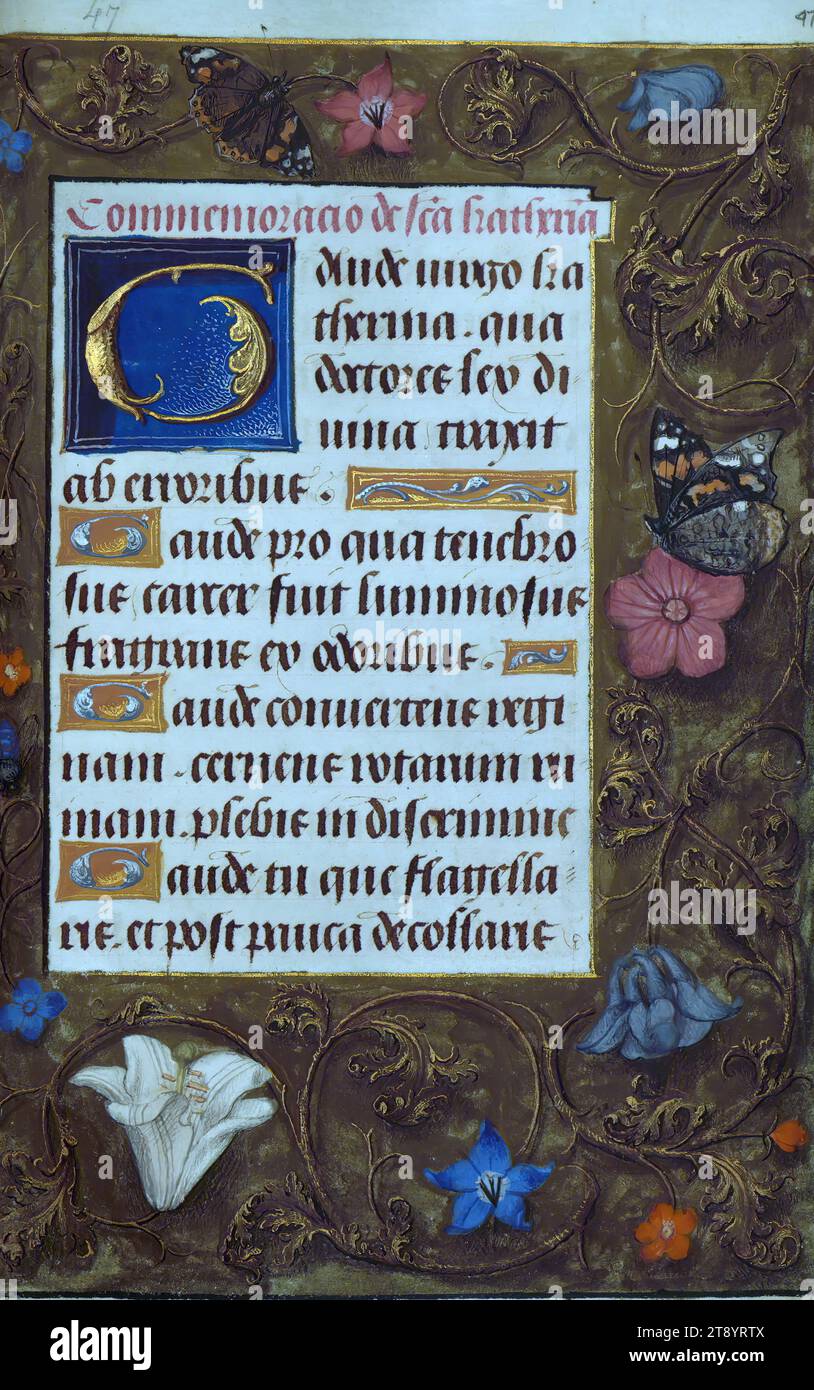 47
47
Commemoracio de sca katherina
Gaude uirgo ka
therina . qua
doctores leo di
uina traxit
ab erroribus .
Gaude pro qua tenebro
sus carcer fuit luminosus
fragrans ex odoribus .
Gaude conuertens regi
nam . cernens rotarum ru
inam . plebis in discrimine
Gaude tu que flagella
ris . et post pauca decollaris
alamy
Image ID: 2T8YRTX
www.alamy.com